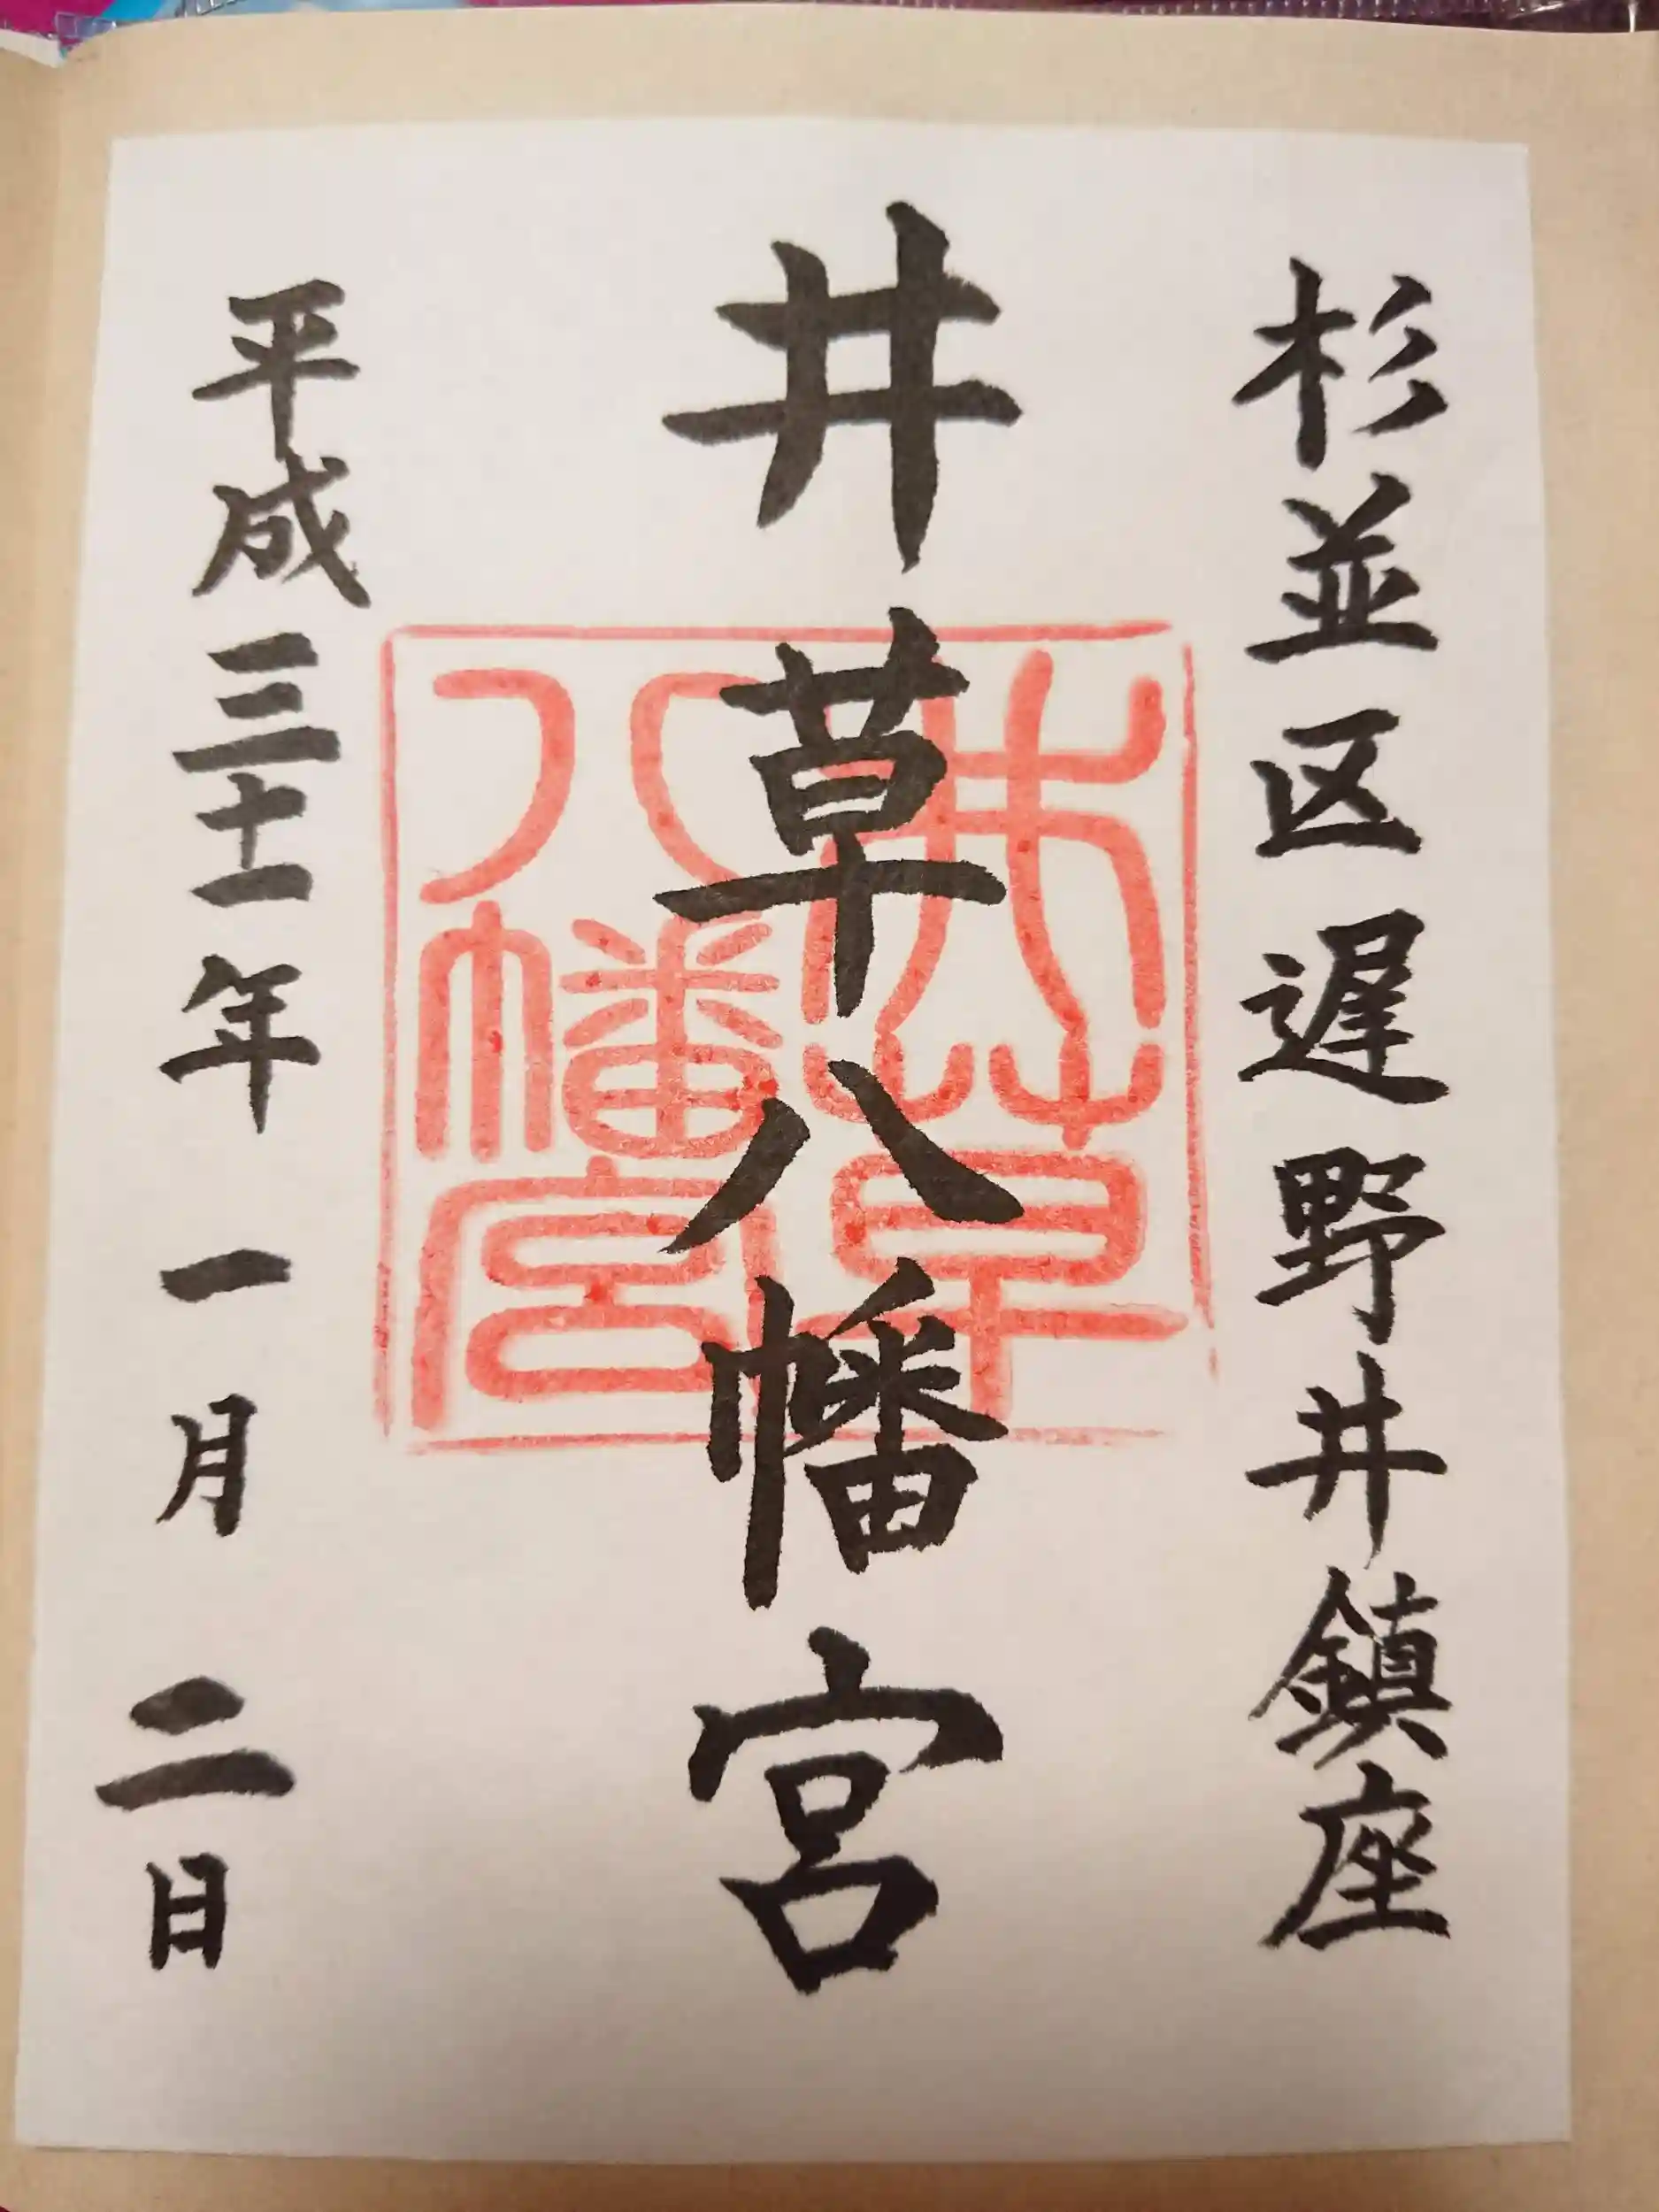 杉並区遅野井鎮座
井草八幡宮
井草
八幡宮
平成三十一年一月二日